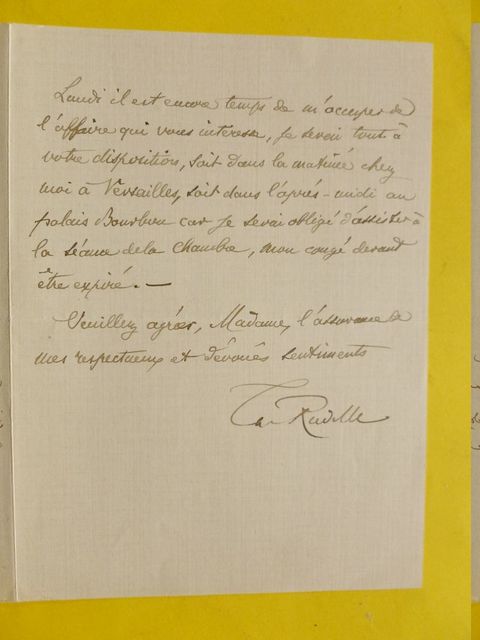 Lundi il est encore temps de m'occuper de
l'affaire qui vous intéresse, je serai tout à
votre disposition, soit dans la matinée chez
moi à Versailles, soit dans l'après-midi au
palais Bourbon car je serai obligé d'assister à
la séance de la Chambre, mon congé devant
être expiré. —
Veuillez agréer, Madame, l'assurance de
mes respectueux et dévoués sentiments